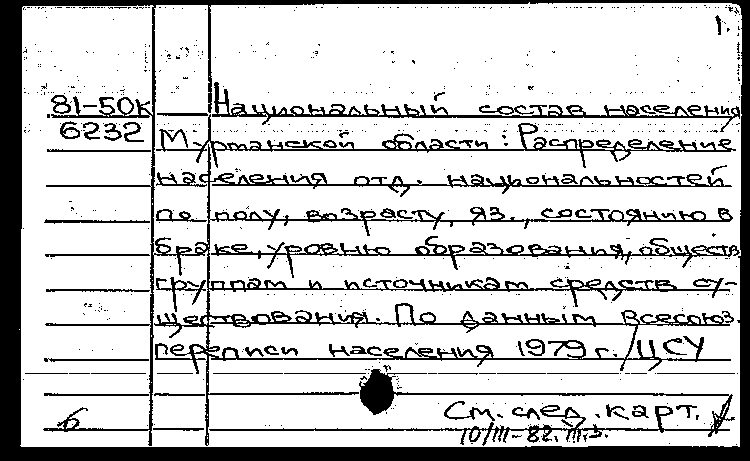 1.
81-50к Национальный состав населения
6232 Мурманской области: Распределение
населения отд. национальностей
по полу, возрасту, яз., состоянию в
браке, уровню образования, обществ
группам и источникам средств су-
ществования. По данным Всесоюз.
переписи населения 1979 г. / ЦСУ
б См. след. карт.
10/III-82.